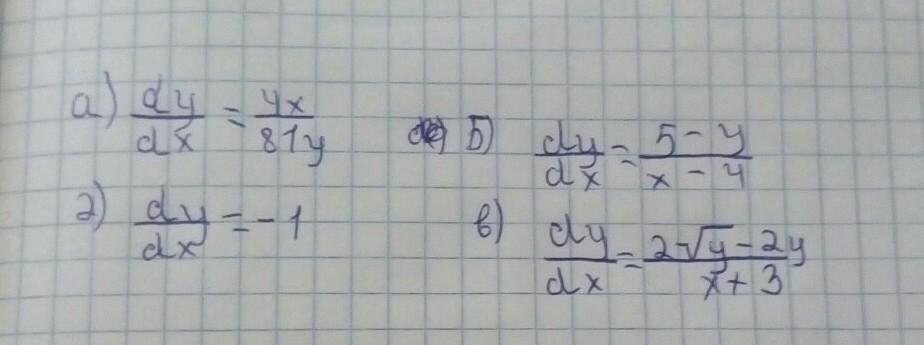 а) dy/dx = 4x/81y
б) dy/dx = (5 - y)/(x - 4)
г) dy/dx = -1
в) dy/dx = (2√y - 2y)/(x + 3)